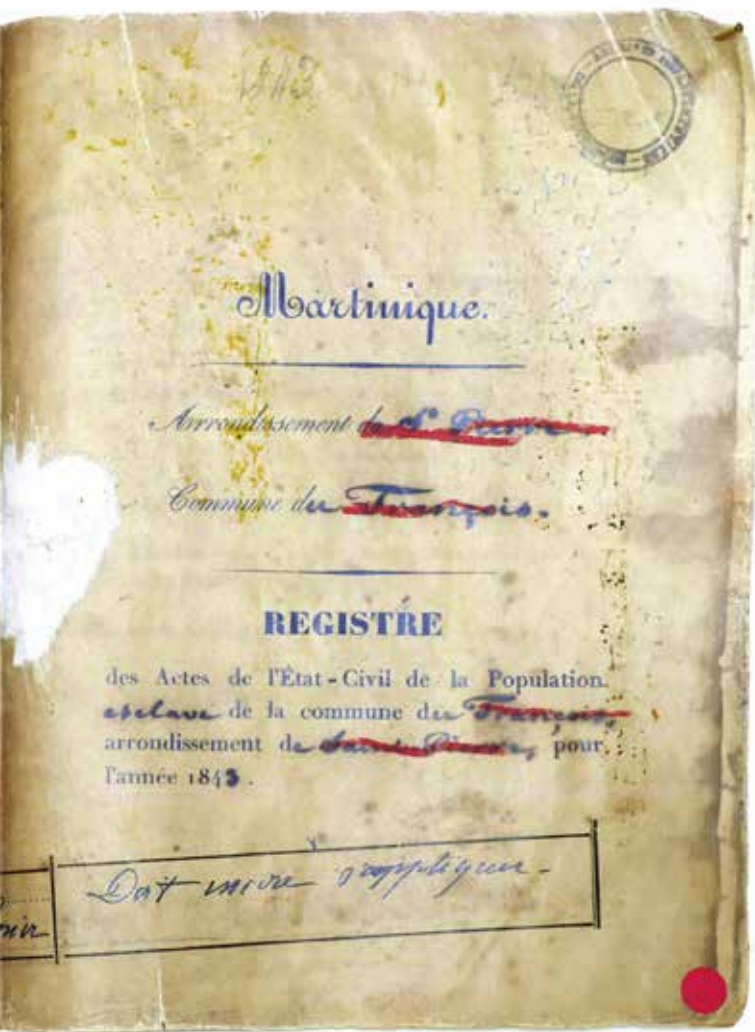 1843
Martinique.
Arrondissement de St Pierre.
Commune du François.
REGISTRE
des Actes de l'État-Civil de la Population
esclave de la commune du François,
arrondissement de Saint-Pierre, pour
l'année 1843.
Doit s'appliquer-